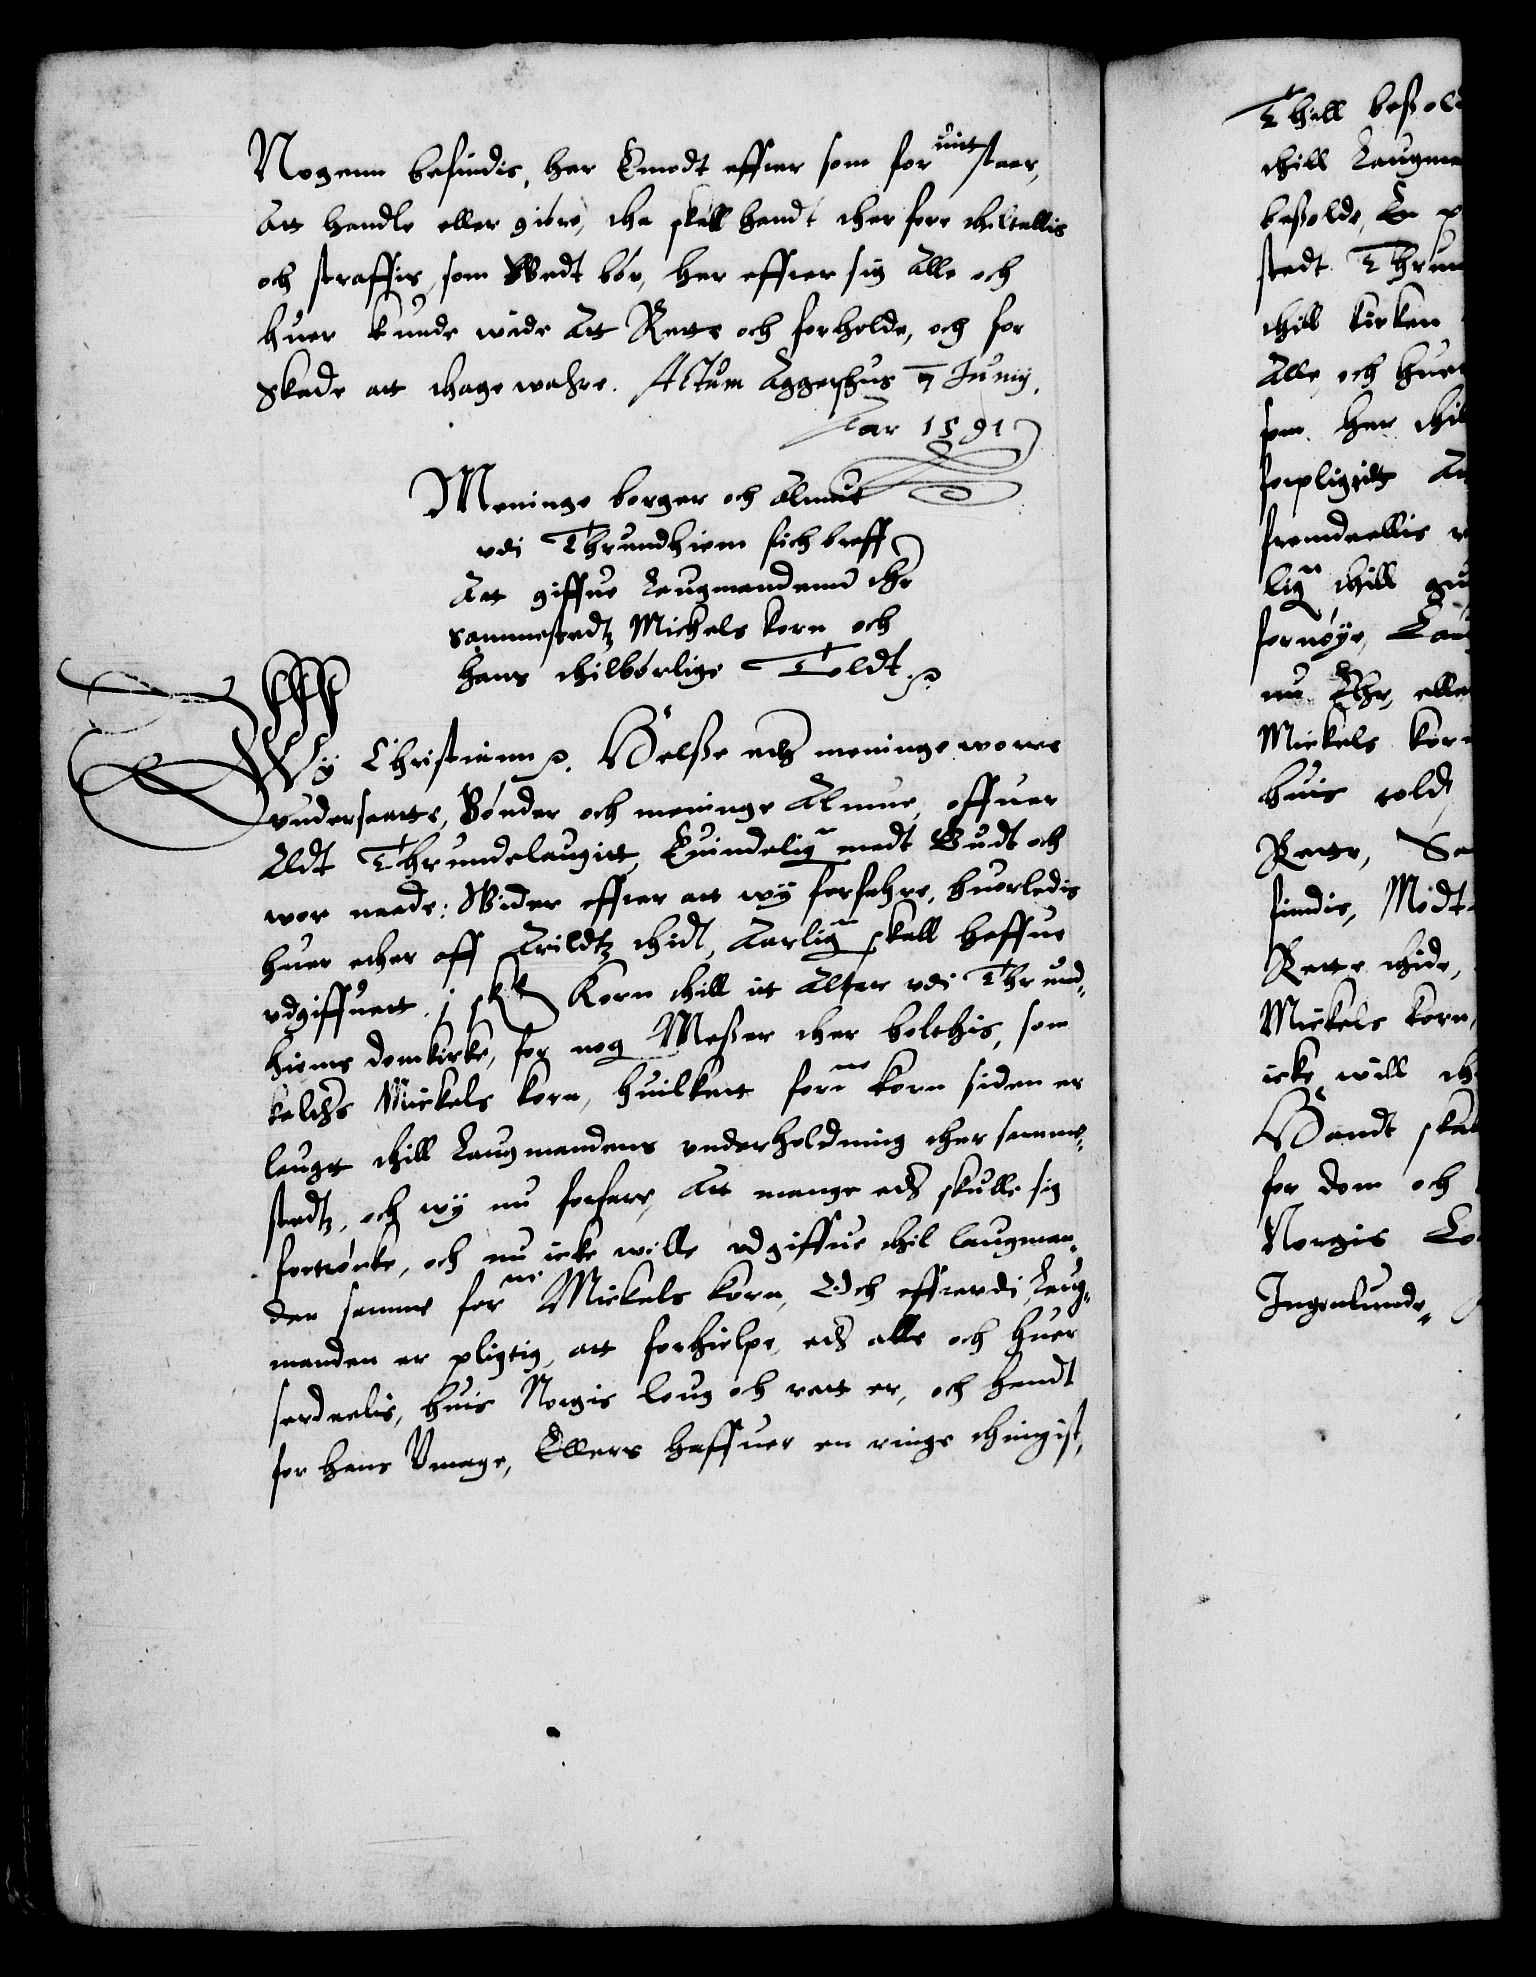 Nogenn befindis, her Emodt effter som foruittstaar,
Att handle eller giøre, tha skall handt ther fore thiltallis
och straffis, som Wedt bør, her effter sig Alle och
huer kunde wide Att Rette och forholde, och for
Skade att thage wahre. Actum Aggershus 7 Junij.
Aar 1591
Meninge borger och Almue
vdi Thrundhiem fich breff
Att giffue Laugmandenn ther
Sammestedtz Michels korn och
hans thilbørlige Toldt.
Wy Christiann. Helße eder meninge wore
vndersaatte, Bønder och meninge Almue, offuer
Aldt Thrundelaugitt, Euindelig medt Gudt och
wor naade: Wider effter att wy forfahre, huorledis
huer ether aff Arildtz thidt, Aarlig skall haffue
vdgiffuett j Korn thill it Alter vdi Thrund-
hiems domkirke, for nog Meßer ther holthis, som
kaldes Mickels korn, huilkett forne korn siden er
laugt thill Laugmandens vnderholdning ther samme-
stedtz, och wy nu forfare, Att mange eder skulle sig
fortrønke, och nu icke wille vdgiffue thil laugman-
den samme forne Mickels korn, Och efftterdi Laug-
manden er pligtig, att forhielpe, eder alle och huer
serdeelis, huis Norgis loug och rett er, och handt
for hans Vmage, Ellers haffuer en ringe thingist,
Thill beßold
thill Laugma
beßolde, En
stedt Thrun
thill kirken
Alle, och huer
som her thil
forpligtit An
fremdeellis
lig thill gu
fornøye, Lau
nu Ehr, elle
Mickels kor
huis told
Rette, Sa
findis, Modt
Rette thide,
Mickels korn,
icke will th
Handt skal
for dom och
Norgis Lo
Ingenlunde